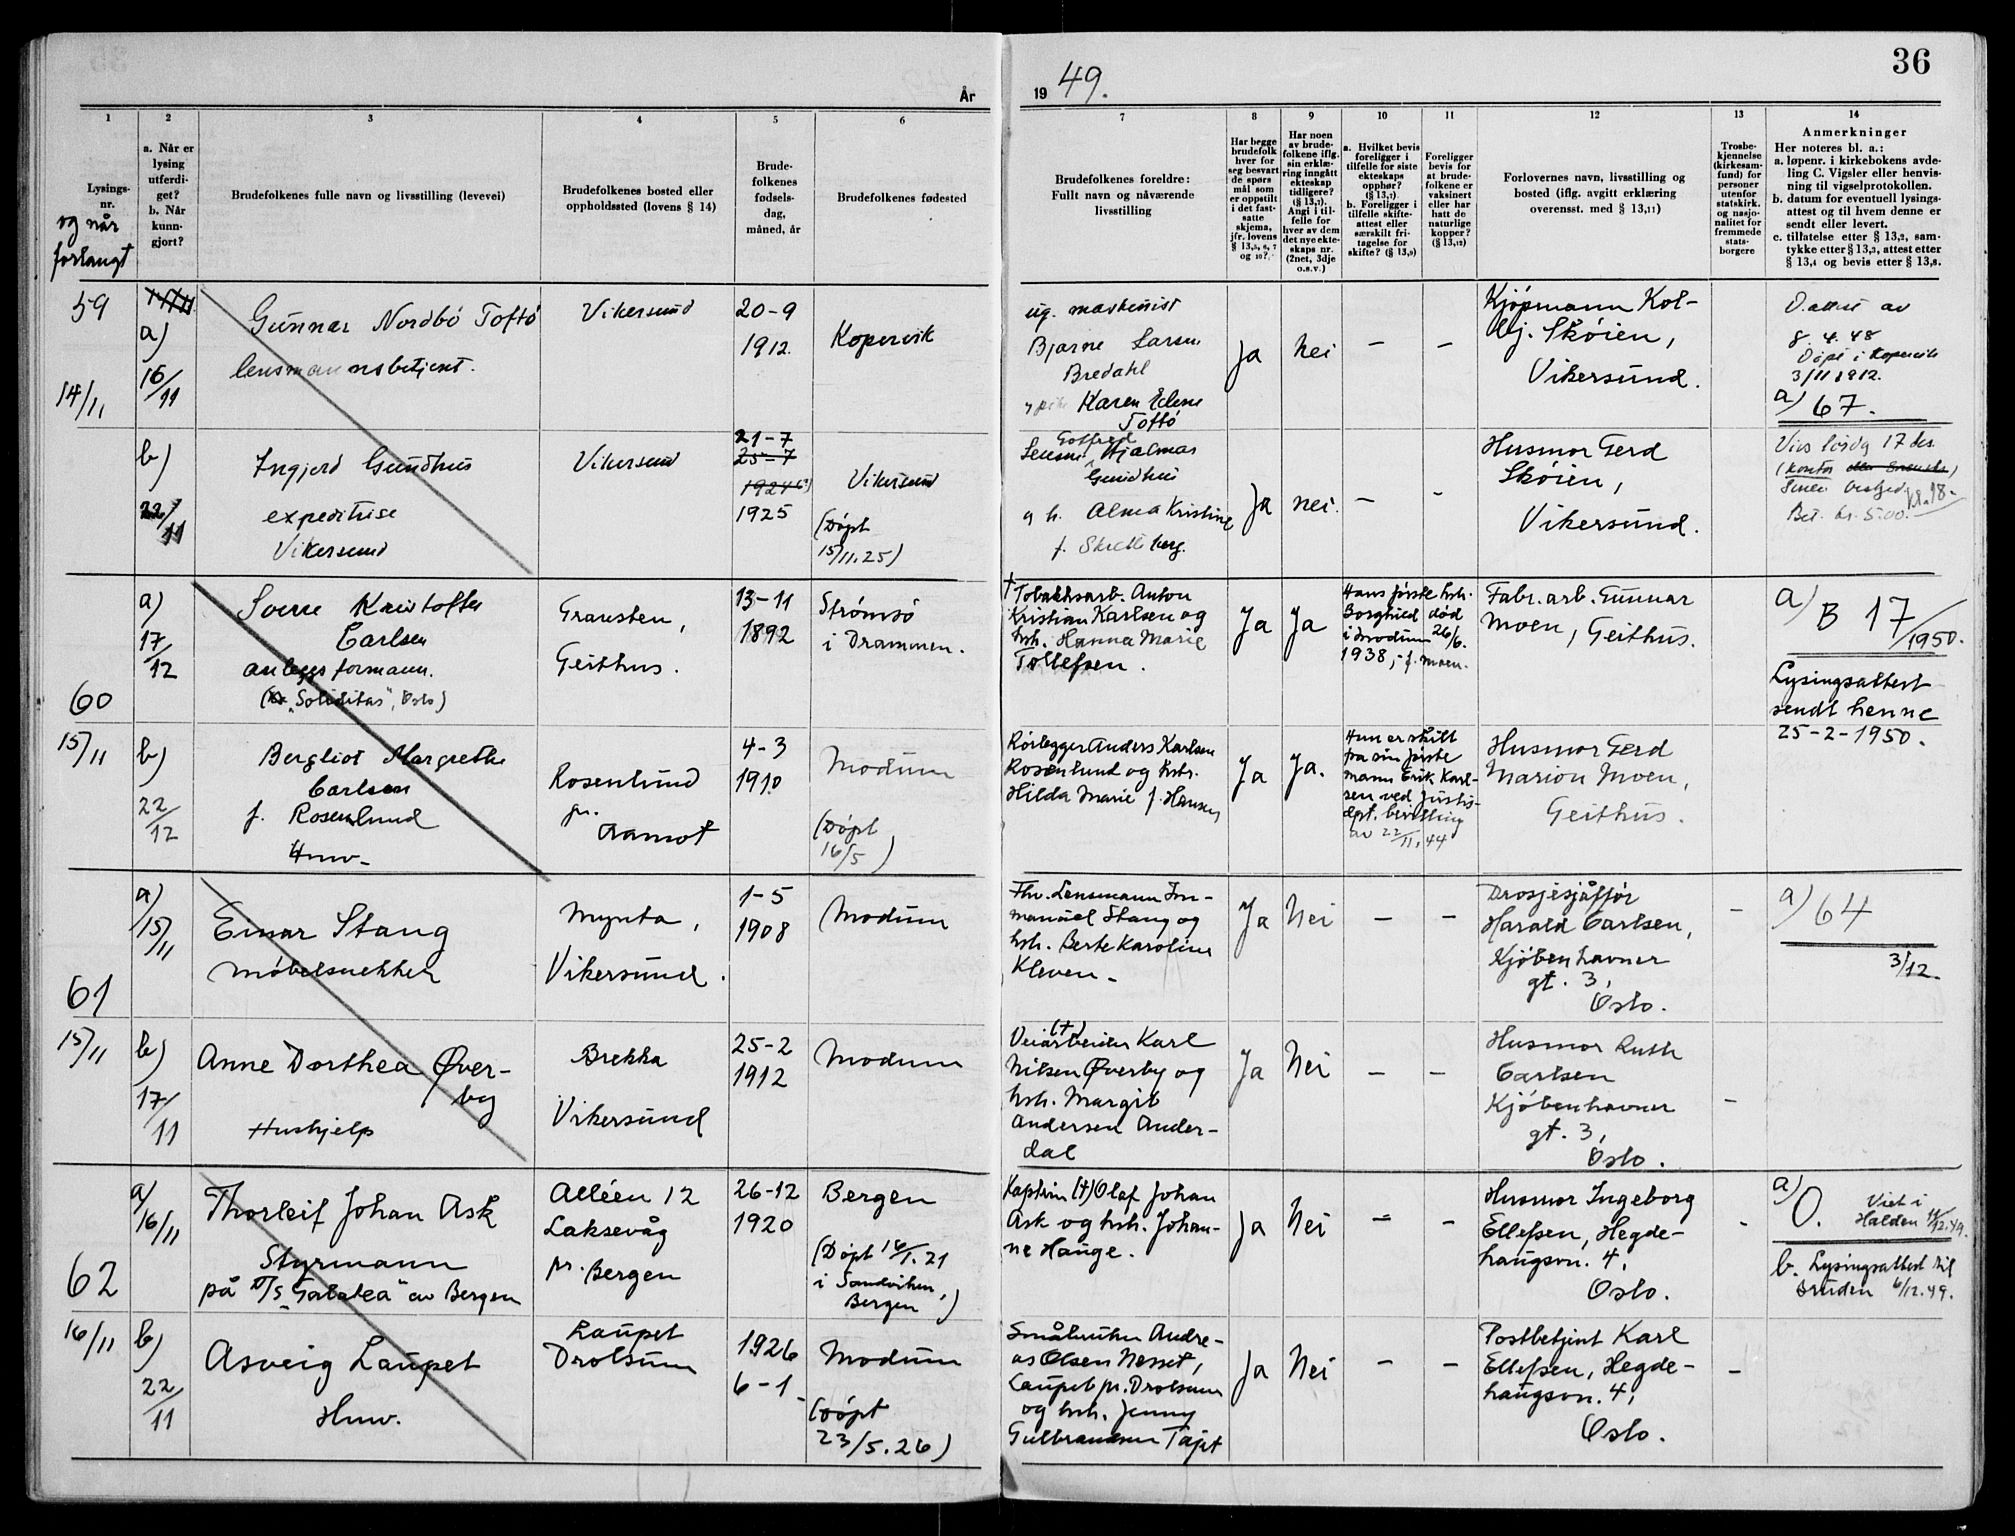 36
År
19 49.
1
2
3
4
5
6
7
8
9
10
11
12
13
14
Lysings-
nr.
og når
forlangt
a. Når er
lysing
utferdi-
get?
b. Når
kunn-
gjort?
Brudefolkenes fulle navn og livsstilling (levevei)
Brudefolkenes bosted eller
oppholdssted (lovens § 14)
Brude-
folkenes
fødsels-
dag,
måned, år
Brudefolkenes fødested
Brudefolkenes foreldre:
Fullt navn og nåværende
livsstilling
Har begge
brudefolk
hver for
seg besvart
de spørs
mål som
er oppstilt
i det fast-
satte
skjema,
jfr. lovens
§ 13,5, 6, 7
og 10?
Har noen
av brude-
folkene iflg.
sin erklæ-
ring inngått
ekteskap
tidligere?
(§ 13,7).
Angi i til-
felle for
hver av dem
det nye ekte-
skaps nr.
(2net, 3dje
o.s.v.)
a. Hvilket bevis
foreligger i
tilfelle for siste
ekteskaps
opphør?
(§ 13,7)
b. Foreligger i
tilfelle skifte-
attest eller
særskilt fri-
tagelse for
skifte? (§ 13,9)
Foreligger
bevis for
at brude-
folkene er
vaksinert
eller har
hatt de
naturlige
kopper?
(§ 13,12)
Forlovernes navn, livsstilling og
bosted (iflg. avgitt erklæring
overensst. med § 13,11)
Trosbe-
kjennelse
(kirkesam-
fund) for
personer
utenfor
statskirk.
og nasjo-
nalitet for
fremmede
stats-
borgere
Anmerkninger
Her noteres bl. a.:
a. løpenr. i kirkebokens avde-
ling C. Vigsler eller henvis-
ning til vigselprotokollen.
b. datum for eventuell lysings-
attest og til hvem denne er
sendt eller levert.
c. tillatelse etter § 13,2, sam-
tykke etter § 13,3, attest etter
§ 13,4 og bevis etter § 13,8.
59
14/11
a)
16/11
Gunnar Nordbö Toftö
lensmannsbetjent.
Vikersund
20-9
1912.
Kopervik
ug. maskinist
Bjarne Larsen
Bredahl
Karen Elene
Toftö
Ja
Nei
–
–
Kjøpmann Kol-
bj. Skøien,
Vikersund.
8.4.48
Döpt i Kopervik
3/11 1912.
a) 67.
b)
22/11
Ingjerd Gundhus
expeditrise
Vikersund
Vikersund
21-7
25-7
1924
1925
Vikersund
(Döpt
15/11.25)
Gotfred
Hjalmar
Gundhus
og h. Alma Kristine
f. Skretteberg.
Ja
nei.
–
-
Husmor Gerd
Skøien,
Vikersund.
17 des
Bet. kr. 5.00.
60
15/11
a)
17/12
Sverre Kristoffer
Carlsen
anleggsformann.
("Soliditas", Oslo)
Gransten,
Geithus.
13-11
1892
Strömsö
i Drammen.
† Tobakksarb. Anton
Kristian Karlsen og
hsh. Hanna Marie
Tollefsen.
Ja
Ja
Hans første hsh.
Borghild død
i Modum 26/6.
1938, - f. Moen.
Fabr.arb. Gunnar
Moen, Geithus.
a) B 17/1950.
Lysingsattest
sendt henne
25-2-1950.
b)
22/12
Bergliot Margrethe
Carlsen
f. Rosenlund
Hmv-
Rosenlund
pr.
Aamot
4-3
1910
Modum
(Döpt
16/5)
Rörlegger Anders Karlsen
Rosenlund og hsh.
Hilda Marie f. Hansen
Ja
Ja.
Hun er skilt
fra sin første
mann Erik Karl-
sen ved Justis-
dpt. bevilling
av 22/11.44
Husmor Gerd
Marion Moen,
Geithus.
61
15/11
a)
15/11
Einar Stang
Möbelsnekker
Mynta,
Vikersund.
1-5
1908
Modum
Fhv. Lensmann Im-
manuel Stang og
hsh. Berte Karoline
Kleven-
Ja
Nei
–
–
Drosjesjåffør
Harald Carlsen,
Kjöbenhavner
gt. 3,
Oslo.
–
a) 64
3/12.
b)
17/11
Anne Dorthea Øver-
by
Hushjelp
Brekka
Vikersund
25-2
1912
Modum
(†)
Veiarbeider Karl
Nilsen Øverby og
hsh. Margit
Andersen Ander-
dal
Ja
Nei
–
–
Husmor Ruth
Carlsen
Kjöbenhavner
gt. 3,
Oslo.
–
62
16/11
a)
16/11
Thorleif Johan Ask
Styrmann
på D/S "Galatea" av Bergen
Alléen 12
Laksevåg
pr. Bergen
26-12
1920
Bergen
(Döpt 16/1.21
i Sandviken,
Bergen)
Kaptein (†) Olaf Johan
Ask og hsh. Johan-
ne Hauge.
Ja
Nei
–
–
Husmor Ingeborg
Ellefsen, Hegde-
haugsvn. 4,
Oslo.
-
a) O. Viet i
Halden 11/12.49.
b. Lysingsattest til
bruden 6/12.49.
b)
22/11
Asveig Laupet
Hmv.
Laupet
Drolsum
1926
6-1
Modum
(Döpt
23/5.26)
Småbruker Andre-
as Olsen Nesset,
Laupet pr. Drolsum
og hsh. Jenny
Gulbrandsen Tajet
Ja
Nei
–
–
Postbetjent Karl
Ellefsen, Hegde-
haugsvn. 4,
Oslo.
–